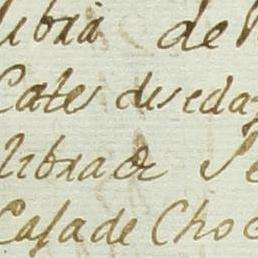 libra de
Cates de seda
libra de Se
Casa de Choc